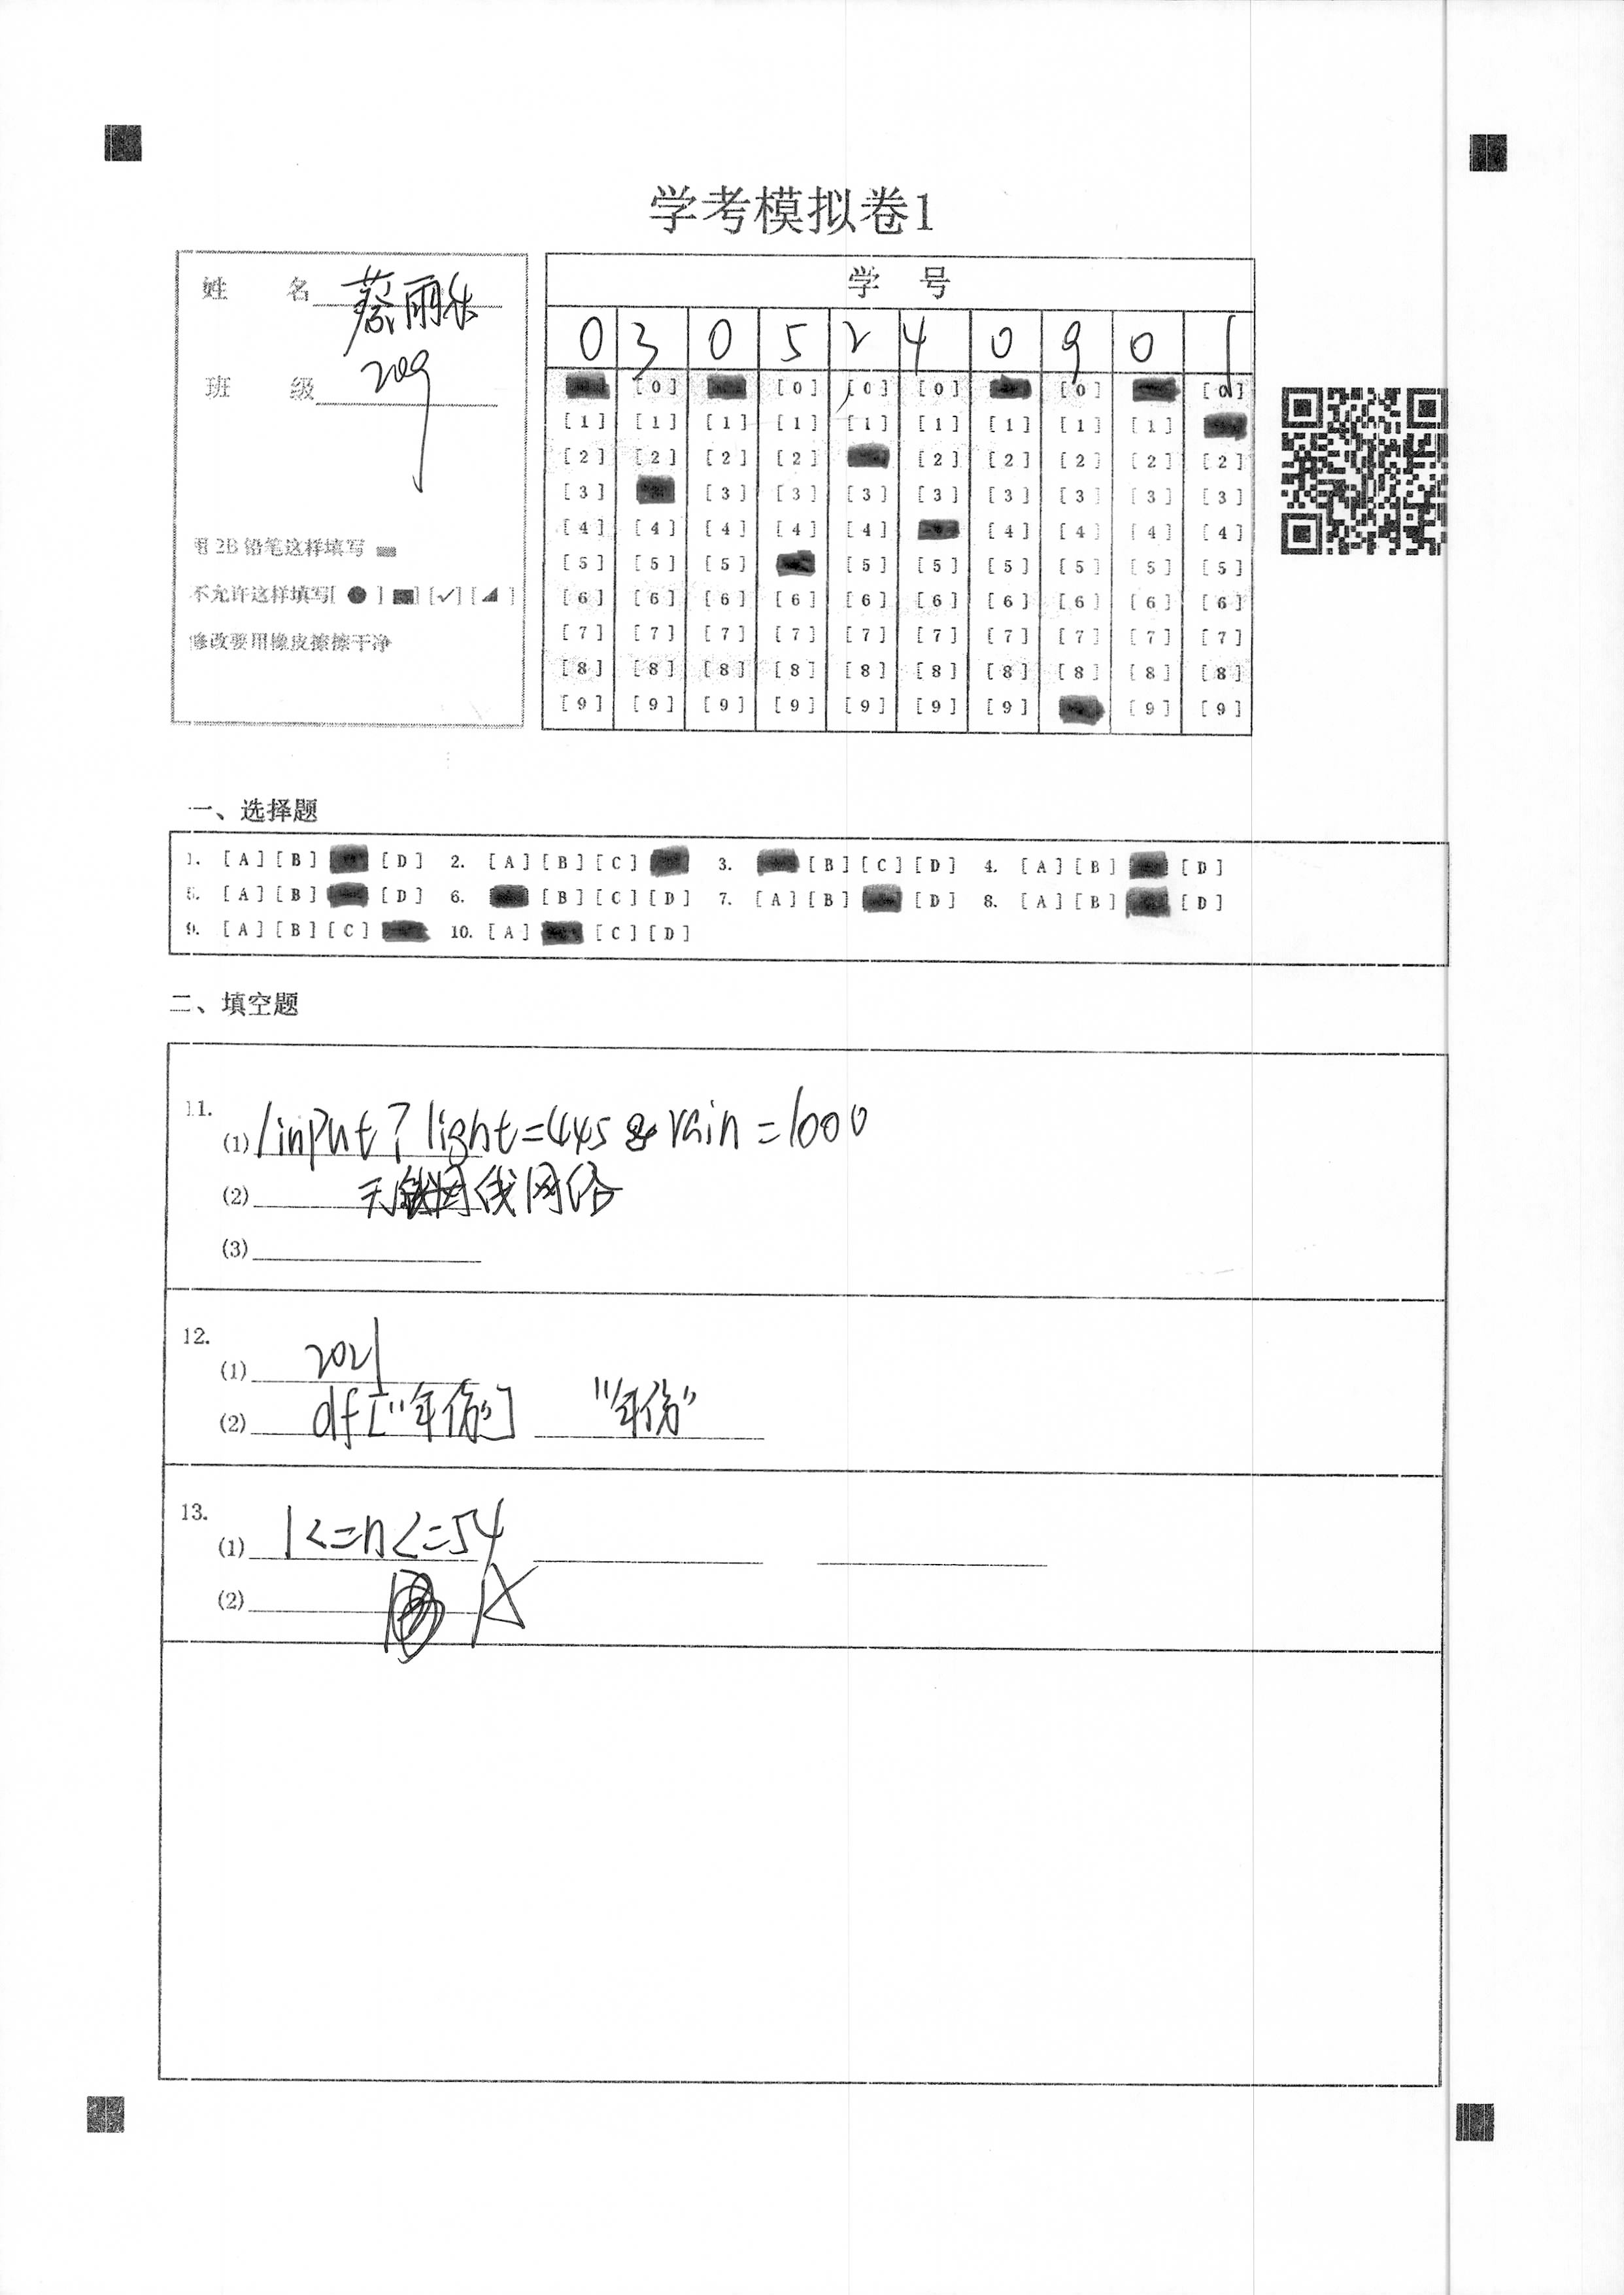 学考模拟卷1
姓 名 蔡丽
班 级 209
用 2B 铅笔这样填写
不允许这样填写[ ● ] [✓] [ ]
修改要用橡皮擦擦干净
学 号
0 3 0 5 2 4 0 9 0 1
[0] [0] [0] [0] [0] [0]
[1] [1] [1] [1] [1] [1] [1] [1] [1]
[2] [2] [2] [2] [2] [2] [2] [2] [2]
[3] [3] [3] [3] [3] [3] [3] [3] [3]
[4] [4] [4] [4] [4] [4] [4] [4] [4]
[5] [5] [5] [5] [5] [5] [5] [5] [5]
[6] [6] [6] [6] [6] [6] [6] [6] [6] [6]
[7] [7] [7] [7] [7] [7] [7] [7] [7] [7]
[8] [8] [8] [8] [8] [8] [8] [8] [8] [8]
[9] [9] [9] [9] [9] [9] [9] [9] [9]
一、选择题
1. [A] [B] [D] 2. [A] [B] [C] 3. [B] [C] [D] 4. [A] [B] [D]
5. [A] [B] [D] 6. [B] [C] [D] 7. [A] [B] [D] 8. [A] [B] [D]
9. [A] [B] [C] 10. [A] [C] [D]
二、填空题
11.
(1) /input?light=445&rain=1000
(2) 无线网络
(3)
12.
(1) 2021
(2) df["年份"] "年份"
13.
(1) 1<=n<=54
(2) A